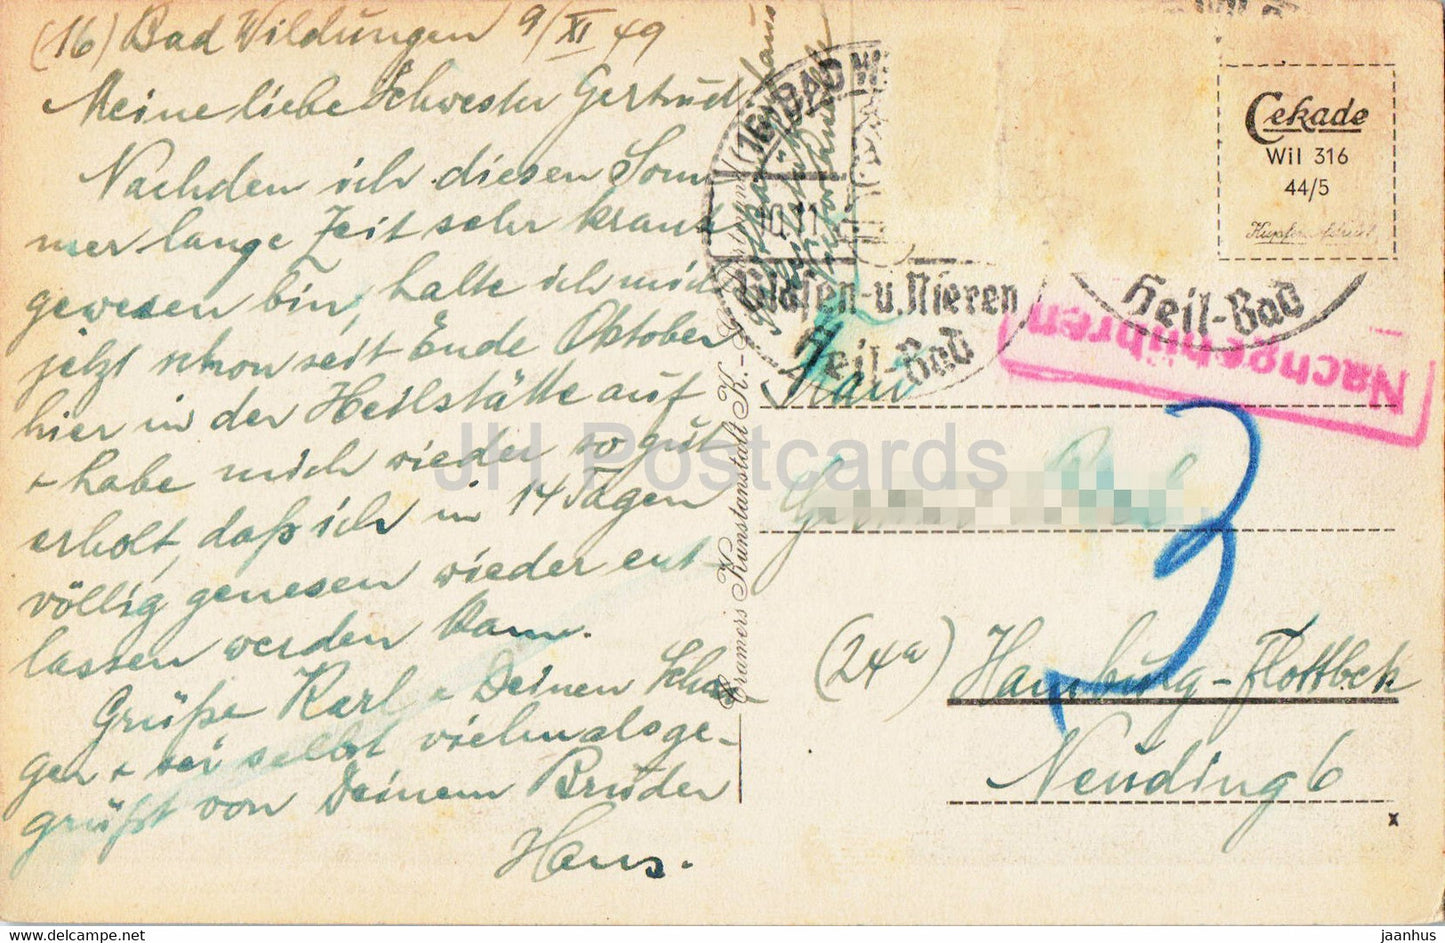 (16) Bad Wildungen 9/XI 49
Meine liebe Schwester Gertrud!
Nachdem ich diesen Som
mer lange Zeit sehr krank
gewesen bin, halte ich mich
jetzt schon seit Ende Oktober
hier in der Heilstätte auf
+ habe mich wieder so gut
erholt, daß ich in 14 Tagen
völlig genesen wieder ent-
lassen werden kann.
Grüße Karl + Deinen Schwa
ger + sei selbst vielmals ge-
grüßt von Deinem Bruder
Hans.
Hans
Cramers Kunstanstalt K.-G. Dortmund
(16) BAD WI
10.11
Blasen-u. Nieren
Heil-Bad
Heil-Bad
Cekade
Wil 316
44/5
Nachgebühren
3
Frau
(24a) Hamburg-Flottbek
Neuding 6
x
JH Postcards
www.jaanhus.com
jaanhus@jaanhus.com